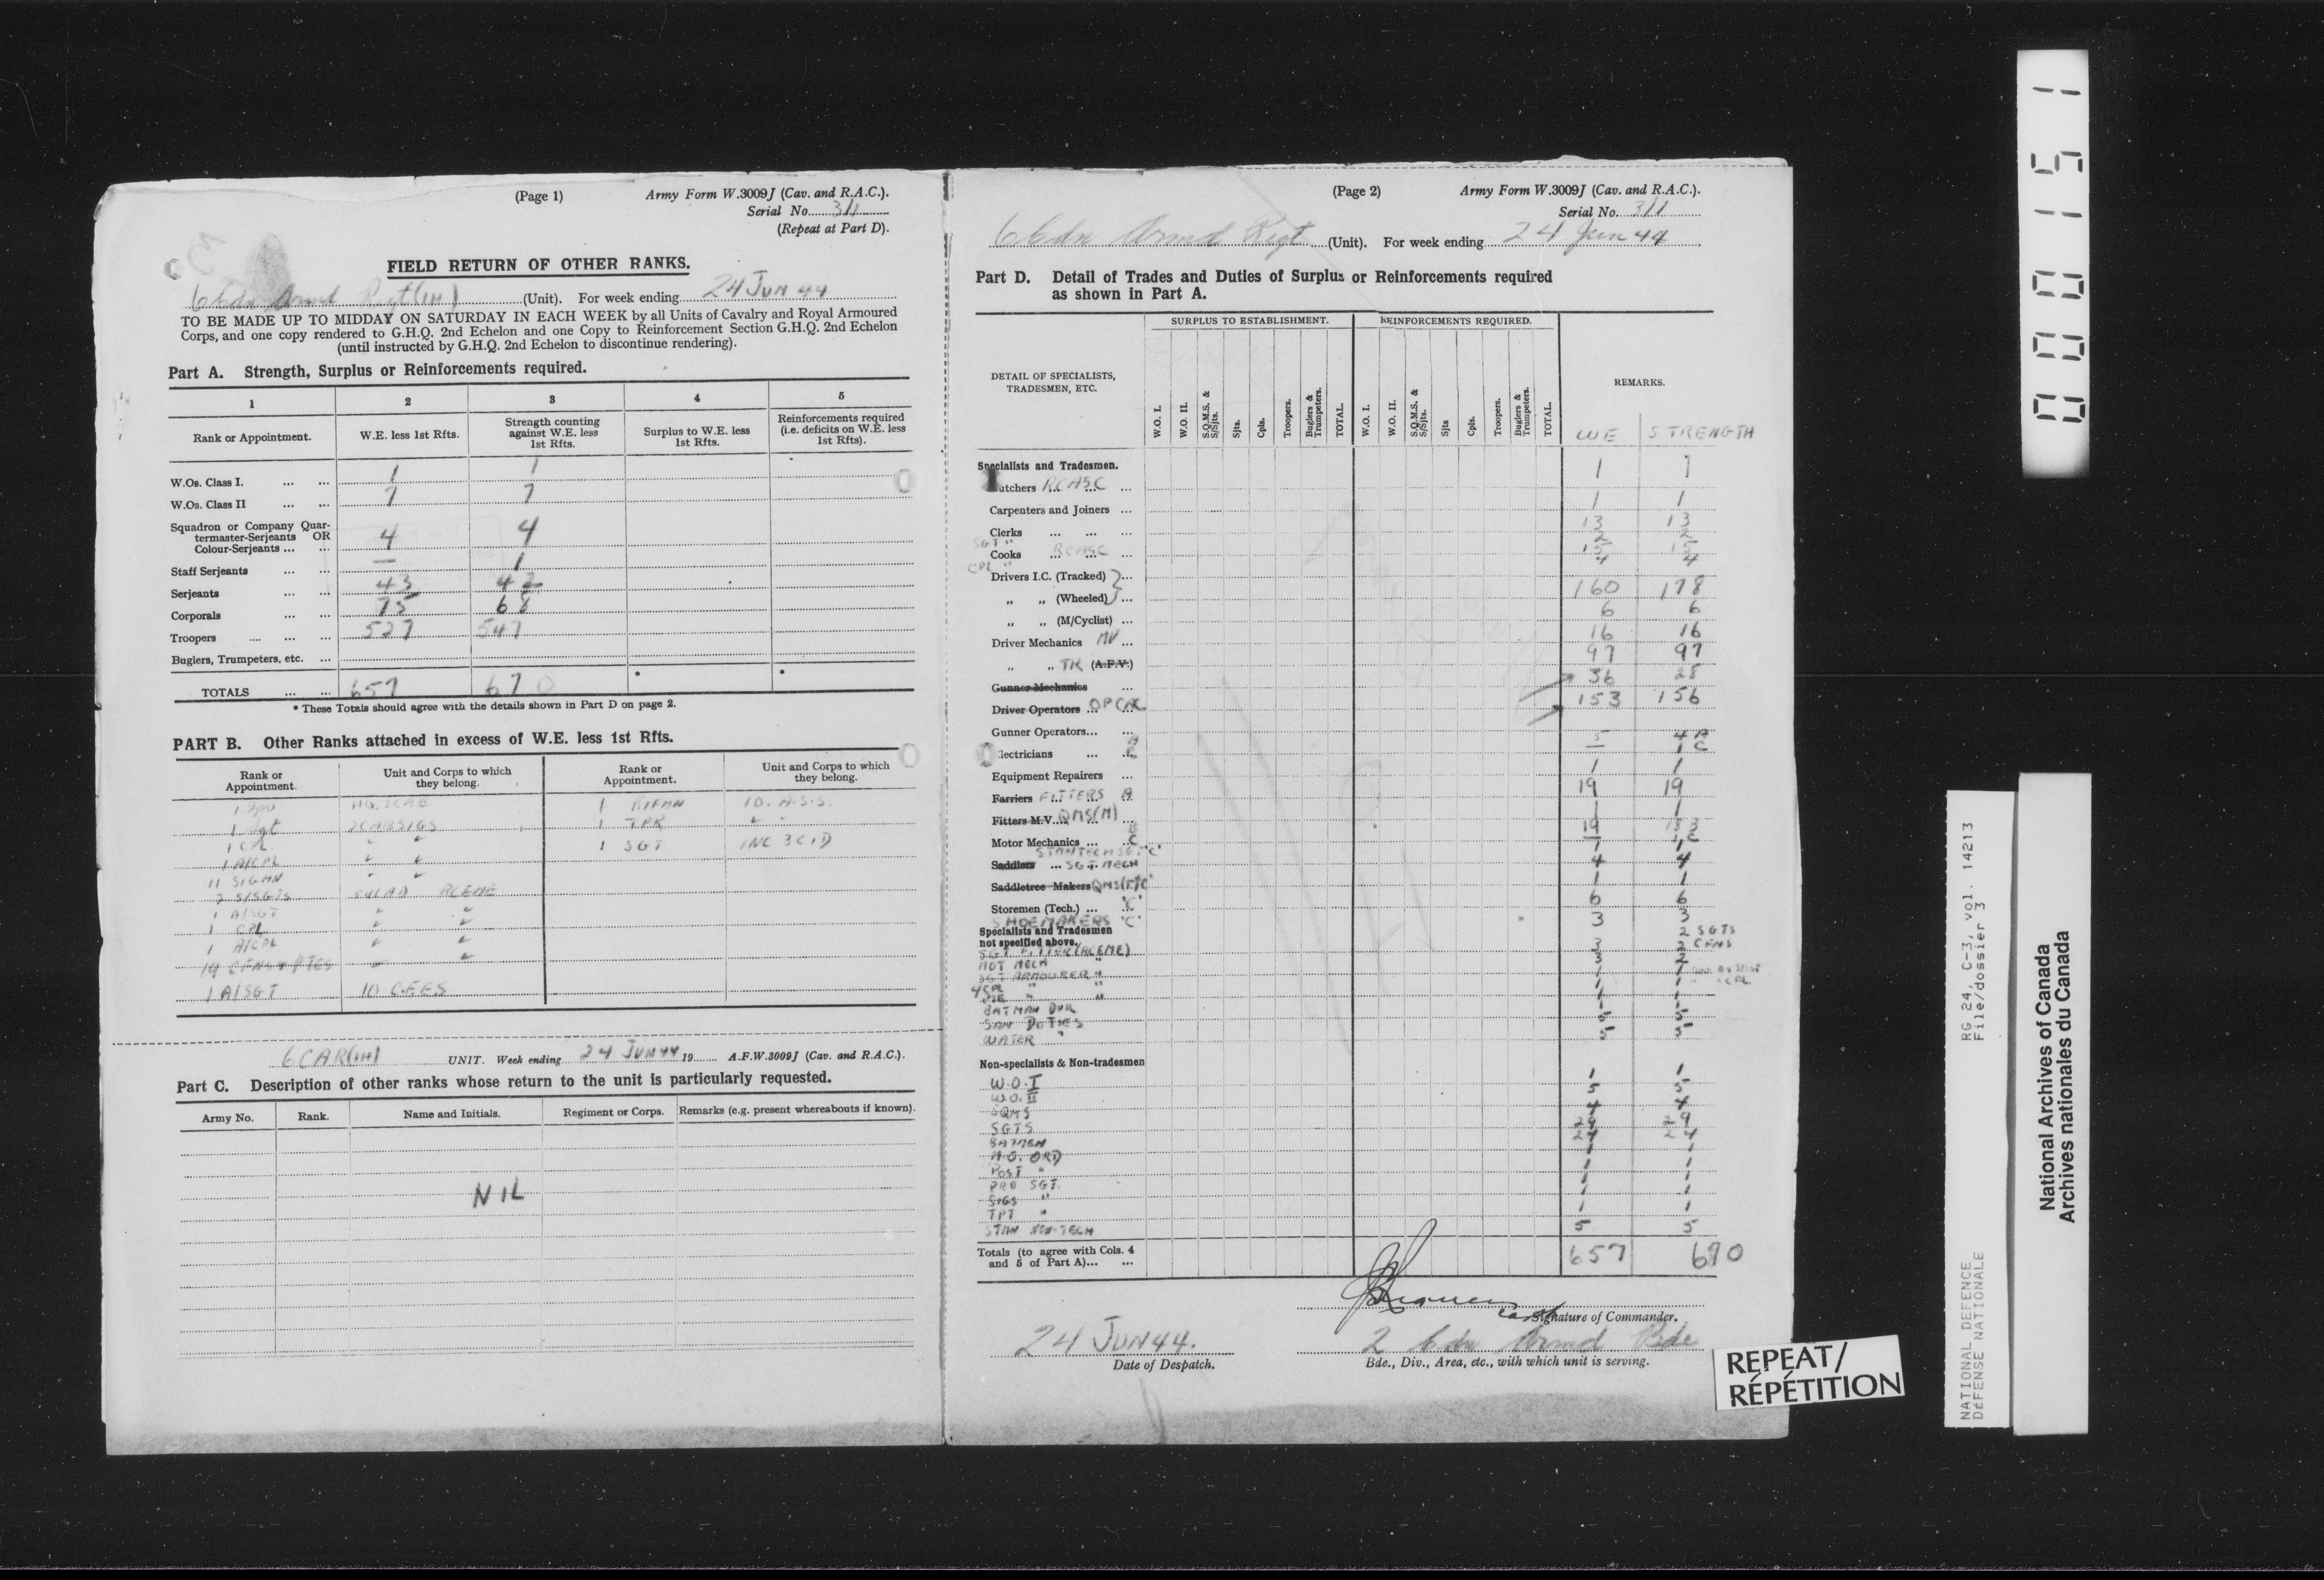 (Page 1) Army Form W.3009J (Cav. and R.A.C.).
Serial No. 311
(Repeat at Part D).
FIELD RETURN OF OTHER RANKS.
6 Cdn Armd Regt (1H) (Unit). For week ending 24 JUN 44
TO BE MADE UP TO MIDDAY ON SATURDAY IN EACH WEEK by all Units of Cavalry and Royal Armoured
Corps, and one copy rendered to G.H.Q. 2nd Echelon and one Copy to Reinforcement Section G.H.Q. 2nd Echelon
(until instructed by G.H.Q. 2nd Echelon to discontinue rendering).
Part A. Strength, Surplus or Reinforcements required.
1 2 3 4 5
Rank or Appointment. W.E. less 1st Rfts. Strength counting against W.E. less 1st Rfts. Surplus to W.E. less 1st Rfts. Reinforcements required (i.e. deficits on W.E. less 1st Rfts).
W.Os. Class I. ... ... 1 1
W.Os. Class II ... ... 7 7
Squadron or Company Quar-
termaster-Serjeants OR
Colour-Serjeants ... ... 4 4
Staff Serjeants ... ... — 1
Serjeants ... ... 43 42
Corporals ... ... 75 68
Troopers .... ... ... 527 547
Buglers, Trumpeters, etc. ...
TOTALS ... ... 657 670 * *
* These Totals should agree with the details shown in Part D on page 2.
PART B. Other Ranks attached in excess of W.E. less 1st Rfts.
Rank or Appointment. Unit and Corps to which they belong. Rank or Appointment. Unit and Corps to which they belong.
1 HQ. 2 CAB 1 RIFMN 10. A.S.S.
1 Sgt 2 CABSIGS 1 TPR " "
1 CPL " " 1 SGT INC 3 CID
1 A/CPL " "
11 SIGMN " "
2 S/SGTS LAD RCEME
1 A/SGT " "
1 CPL " "
1 A/CPL " "
19 CFNS & PTES " "
1 A/SGT 10 C.F.E.S
6 CAR (1H) UNIT. Week ending 24 JUN 44 19 A.F.W.3009J (Cav. and R.A.C.).
Part C. Description of other ranks whose return to the unit is particularly requested.
Army No. Rank. Name and Initials. Regiment or Corps. Remarks (e.g. present whereabouts if known).
NIL
(Page 2) Army Form W.3009J (Cav. and R.A.C.).
Serial No. 311
6 Cdn Armd Regt (Unit). For week ending 24 Jun 44
Part D. Detail of Trades and Duties of Surplus or Reinforcements required
as shown in Part A.
SURPLUS TO ESTABLISHMENT. REINFORCEMENTS REQUIRED.
DETAIL OF SPECIALISTS, TRADESMEN, ETC. REMARKS.
W.O. I. W.O. II. S.Q.M.S. & S/Sjts. Sjts. Cpls. Troopers. Buglers & Trumpeters. TOTAL. W.O. I. W.O. II. S.Q.M.S. & S/Sjts. Sjts Cpls. Troopers. Buglers & Trumpeters. TOTAL. WE STRENGTH
Specialists and Tradesmen. 1 1
utchers RCASC ... 1 1
Carpenters and Joiners ... 13 13
Clerks ... ... ... 2 2
SGT "
Cooks RCASC ... 15 15
CPL " 4 4
Drivers I.C. (Tracked) } ... 160 178
" " (Wheeled) } ... 6 6
" " (M/Cyclist) ... 16 16
Driver Mechanics MV ... 97 97
" " TK (A.F.V.) 36 28
Gunner Mechanics ... 153 156
Driver Operators ... OP CAC
Gunner Operators... ... 5 4 A
lectricians ... C — 1 C
Equipment Repairers ... 1 1
Farriers FITTERS A 19 19
Fitters M.V. QMS(M) 1 1
Motor Mechanics ... C 19
STMN TECH SGT "C"
Saddlers ... SGT MECH 4 4
Saddletree Makers QMS(T) "C" 1 1
Storemen (Tech.) ... "C" 6 6
SHOEMAKERS "C" 3 3
Specialists and Tradesmen
not specified above. 2 SGTS
SGT FITTER (RCEME) 3 2 CFNS
MOT MECH " 3 2
SGT ARMOURER " 1 1
CPL " " 1 1
PTE " " 1 1
BATMAN DVR 1 1
SAN DUTIES 5 5
WATER " 5 5
Non-specialists & Non-tradesmen
W.O. I 1 1
W.O. II 5 5
SQMS 4 4
SGTS 29 29
BATMEN 24 24
M.O. ORD 1 1
POST " 1 1
PRO SGT. 1 1
SIGS " 1 1
TPT " 1 1
STMN NON-TECH 5 5
Totals (to agree with Cols. 4
and 5 of Part A)... ... 657 670
Capt Signature of Commander.
24 JUN 44. 2 Cdn Armd Bde
Date of Despatch. Bde., Div., Area, etc., with which unit is serving.
REPEAT/
RÉPÉTITION
000151
RG 24, C-3, vol. 14213
File/dossier 3
NATIONAL DEFENCE
DÉFENSE NATIONALE
National Archives of Canada
Archives nationales du Canada